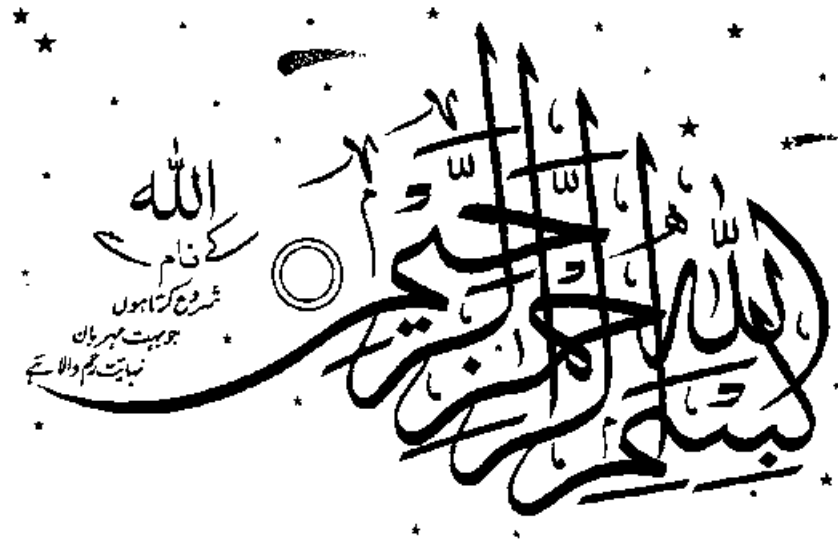 بسم الله الرحمن الرحيم
اللہ
کے نام
شروع کرتا ہوں
جو بہت مہربان
نہایت رحم والا ہے